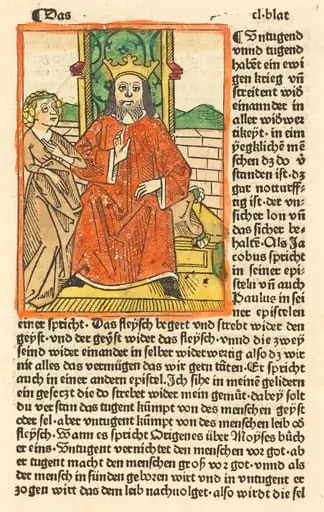 Das
cl·blat
¶ Untugend
vnnd tugend
habēt ein ewi
gen krieg vn̄
streitent wid
einannder in
aller widwer
tikeyt· in eim
yegklichē mē
schen dz do v̾
standen ist·dz
gar notturff-
tig ist·der vn-
sicher lon vn̄
das sicher be-
haltē·Als Ja
cobus spricht
in seiner epi-
steln vn̄ auch
Paulus in sei
ner epistelen
einer spricht·Das fleysch begert vnd strebt wider den
geyst·vnd der geyst wider das fleysch·vnnd die zwey
seind wider einander in selber widerwertig also dz wir
nit alles das vermügen das wir gern täten·Er spricht
auch in einer andern epistel·Ich sihe in meinē gelidern
ein gesetzt die do strebet wider mein gemüt·dabey solt
du verstan das tugent kümpt von des menschen geyst
oder sel·aber vntugent kümpt von des menschen leib oď
fleysch·Wann es spricht Origenes über Moyses bůch
er eins·Untugent vernichtet den menschen vor got·ab
er tugent macht den menschen groß vor got·vnnd als
der mensch in sünden geboren wirt vnd in vntugent er
zogen wirt das dem leib nachuolget·also wirdt die sel